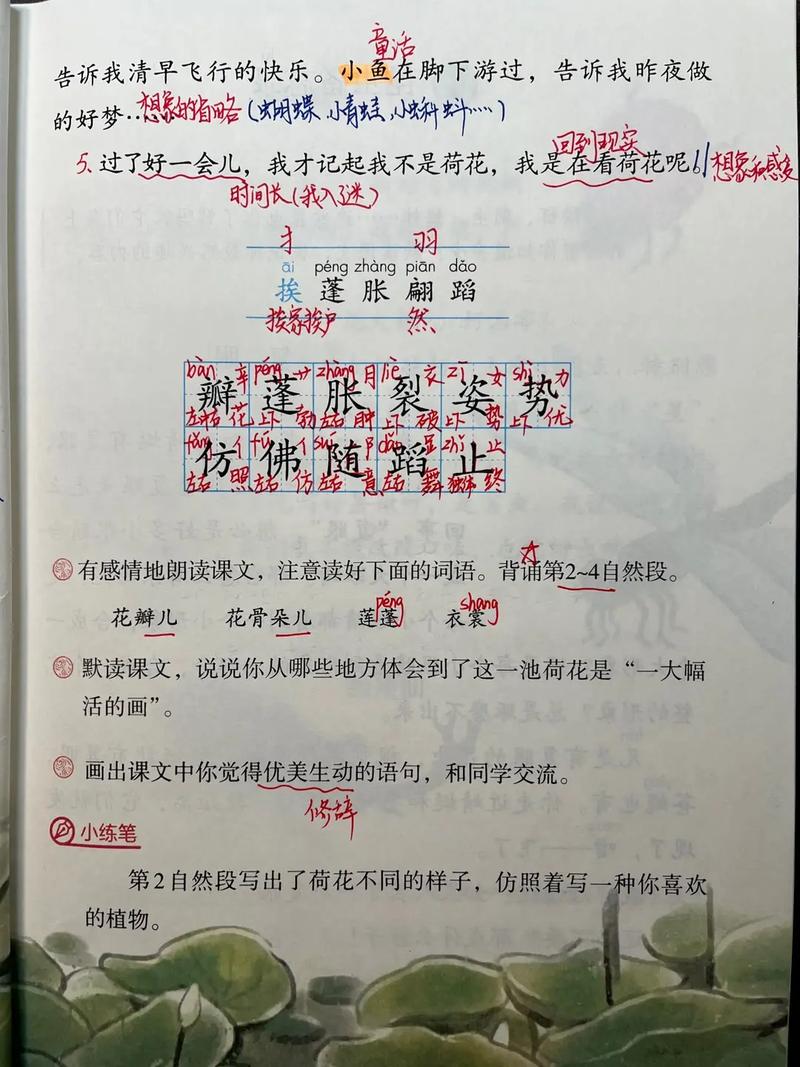 童话
告诉我清早飞行的快乐。小鱼在脚下游过，告诉我昨夜做
的好梦…想象的省略（蝴蝶、小青蛙、小蝌蚪……）
回到现实
5.过了好一会儿，我才记起我不是荷花，我是在看荷花呢。//想象和感受
时间长（我入迷）
扌 羽
āi péng zhàng piān dǎo
挨 蓬 胀 翩 蹈
挨家挨户 然
bàn 辛 péng 艹 zhàng 月 liè 衣 zī 女 shì 力
瓣 蓬 胀 裂 姿 势
左右 花 上下 勃 左右 肿 上下 破 上下 势 上下 优
fǎng 亻 fú 亻 suí 阝 dǎo zhǐ 止
仿 佛 随 蹈 止
左右 照 左右 仿 左右 意 左右 舞 独体 终
有感情地朗读课文，注意读好下面的词语。背诵第2~4自然段。
péng shang
花瓣儿 花骨朵儿 莲蓬 衣裳
默读课文，说说你从哪些地方体会到了这一池荷花是“一大幅
活的画”。
画出课文中你觉得优美生动的语句，和同学交流。
修辞
小练笔
第2自然段写出了荷花不同的样子，仿照着写一种你喜欢
的植物。